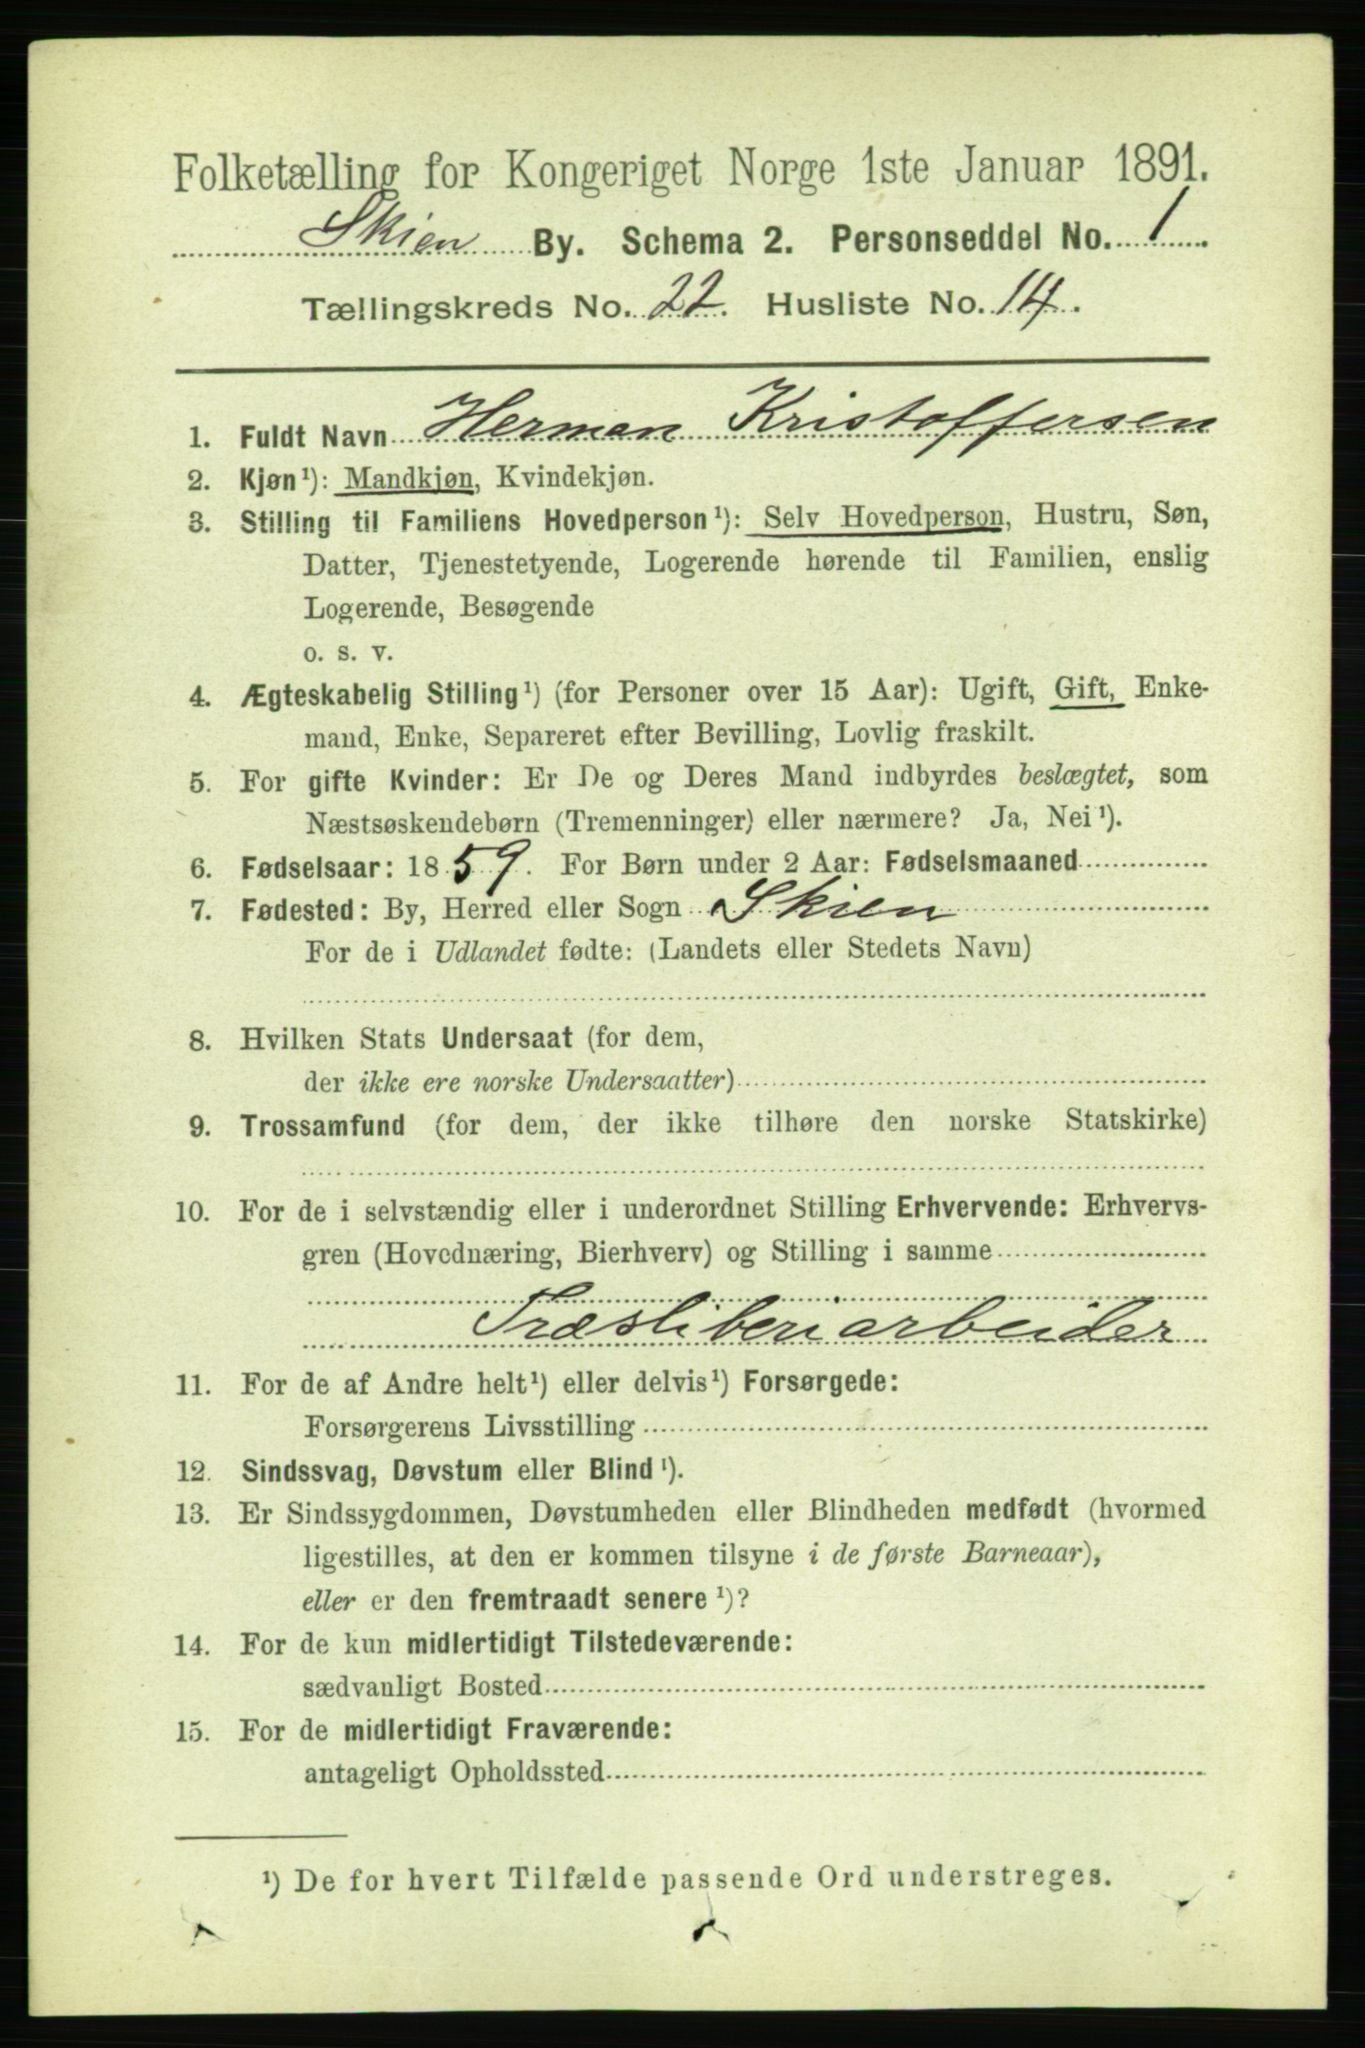 Folketælling for Kongeriget Norge 1ste Januar 1891.
Skien By. Schema 2. Personseddel No. 1
Tællingskreds No. 22. Husliste No. 14.
1. Fuldt Navn Herman Kristoffersen
2. Kjøn¹): Mandkjøn, Kvindekjøn.
3. Stilling til Familiens Hovedperson¹): Selv Hovedperson, Hustru, Søn,
Datter, Tjenestetyende, Logerende hørende til Familien, enslig
Logerende, Besøgende
o. s. v.
4. Ægteskabelig Stilling¹) (for Personer over 15 Aar): Ugift, Gift, Enke-
mand, Enke, Separeret efter Bevilling, Lovlig fraskilt.
5. For gifte Kvinder: Er De og Deres Mand indbyrdes beslægtet, som
Næstsøskendebørn (Tremenninger) eller nærmere? Ja, Nei¹).
6. Fødselsaar: 1859. For Børn under 2 Aar: Fødselsmaaned
7. Fødested: By, Herred eller Sogn Skien
For de i Udlandet fødte: (Landets eller Stedets Navn)
8. Hvilken Stats Undersaat (for dem,
der ikke ere norske Undersaatter)
9. Trossamfund (for dem, der ikke tilhøre den norske Statskirke)
10. For de i selvstændig eller i underordnet Stilling Erhvervende: Erhvervs-
gren (Hovednæring, Bierhverv) og Stilling i samme
Træsliberiarbeider
11. For de af Andre helt¹) eller delvis¹) Forsørgede:
Forsørgerens Livsstilling
12. Sindssvag, Døvstum eller Blind¹).
13. Er Sindssygdommen, Døvstumheden eller Blindheden medfødt (hvormed
ligestilles, at den er kommen tilsyne i de første Barneaar),
eller er den fremtraadt senere¹)?
14. For de kun midlertidigt Tilstedeværende:
sædvanligt Bosted
15. For de midlertidigt Fraværende:
antageligt Opholdssted
¹) De for hvert Tilfælde passende Ord understreges.